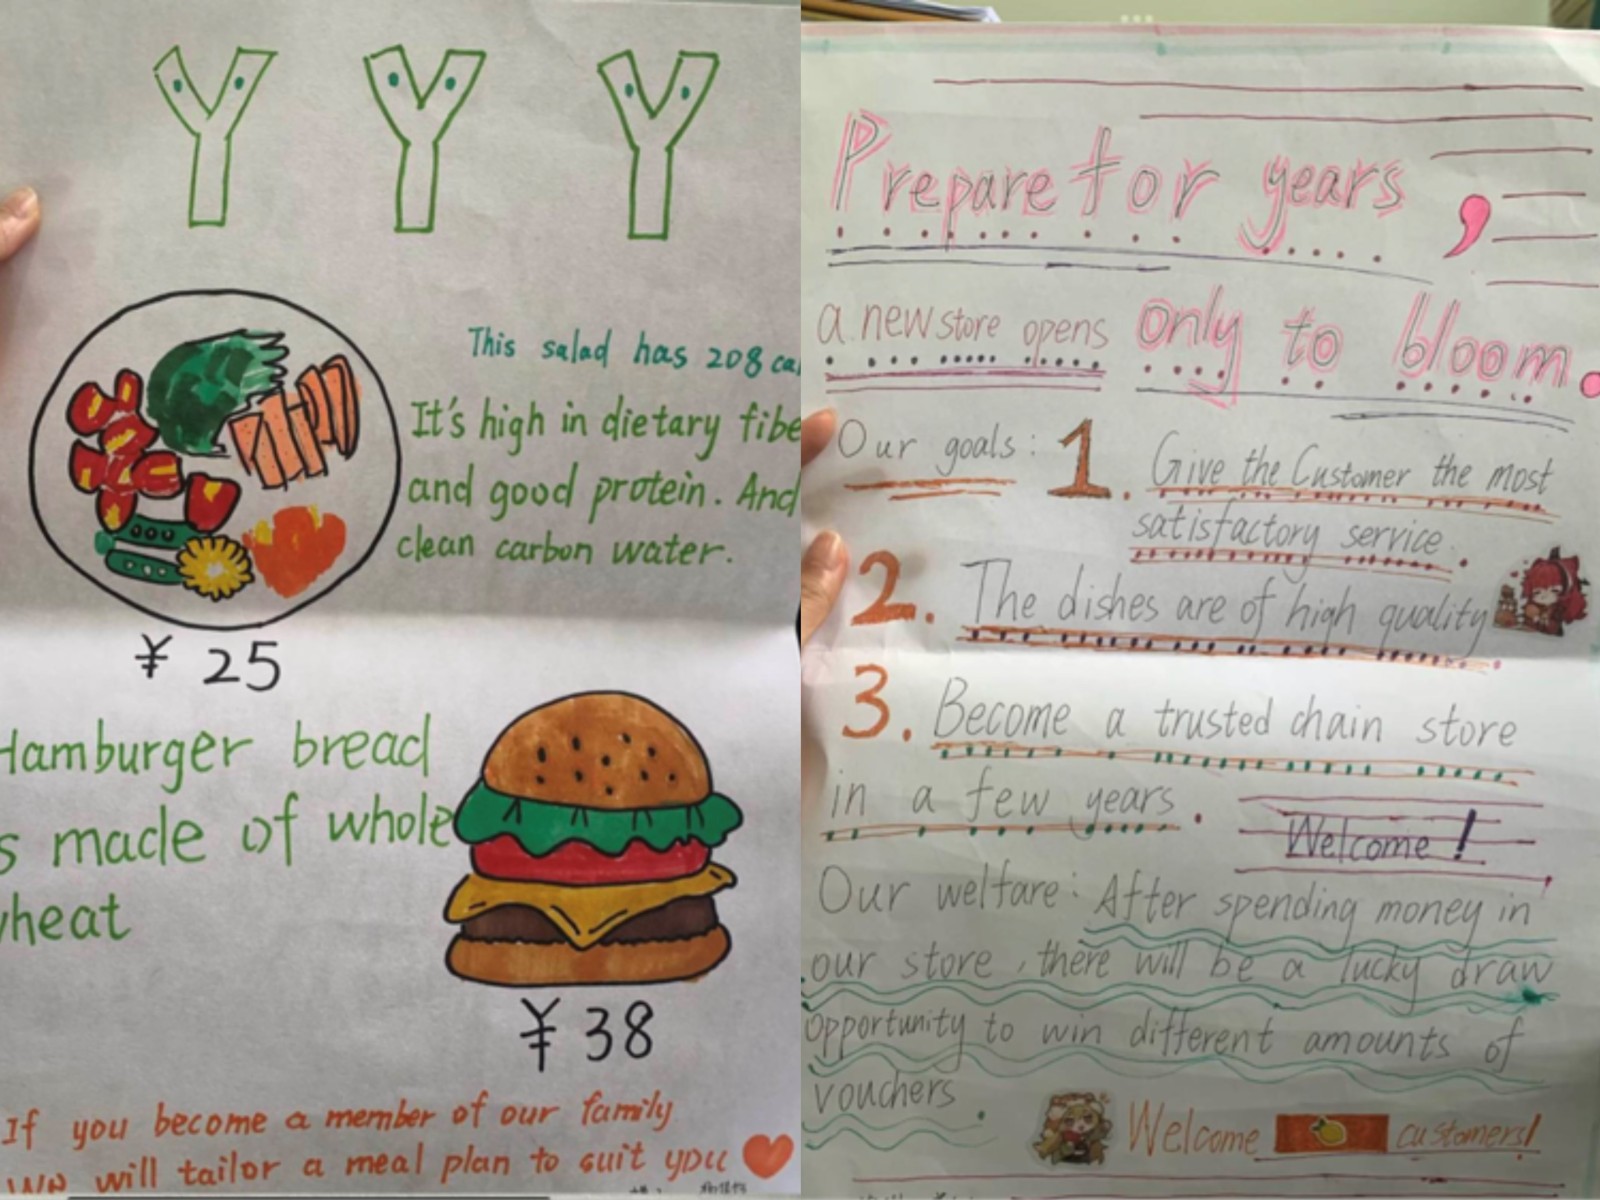 Y Y Y
This salad has 208 ca
It's high in dietary fibe
and good protein. And
clean carbon water.
¥ 25
Hamburger bread
s made of whole
wheat
¥ 38
If you become a member of our family
we will tailor a meal plan to suit you
Prepare for years,
a new store opens only to bloom.
Our goals: 1. Give the Customer the most
satisfactory service.
2. The dishes are of high quality.
3. Become a trusted chain store
in a few years.
Welcome!
Our welfare: After spending money in
our store, there will be a lucky draw
opportunity to win different amounts of
vouchers.
Welcome customers!